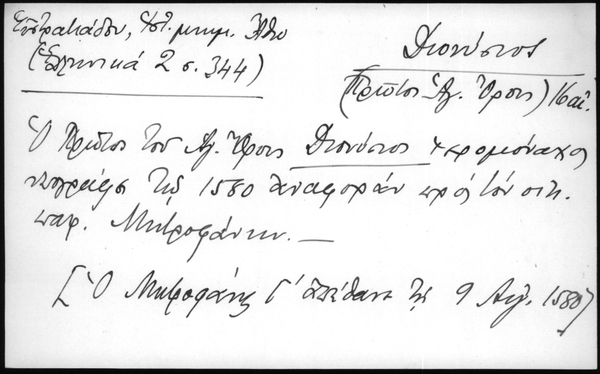 Εὐστρατιάδου, Ἱστ. μνημ. Ἄθω
(Ἑλληνικά 2 σ. 344)
Διονύσιος
(Πρῶτος Ἁγ. Ὄρους) 16 αἰ.
Ὁ Πρῶτος τοῦ Ἁγ. Ὄρους Διονύσιος ἱερομόναχος
ὑπογράφει τῷ 1580 ἀναφοράν πρός τόν οἰκ.
πατρ. Μητροφάνην. —
[Ὁ Μητροφάνης Γ΄ ἀπέθανε τῇ 9 Αὐγ. 1580]